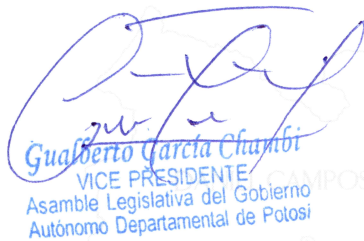 Gualberto García Chambi
VICE PRESIDENTE
Asamble Legislativa del Gobierno
Autónomo Departamental de Potosi
CAMPOS